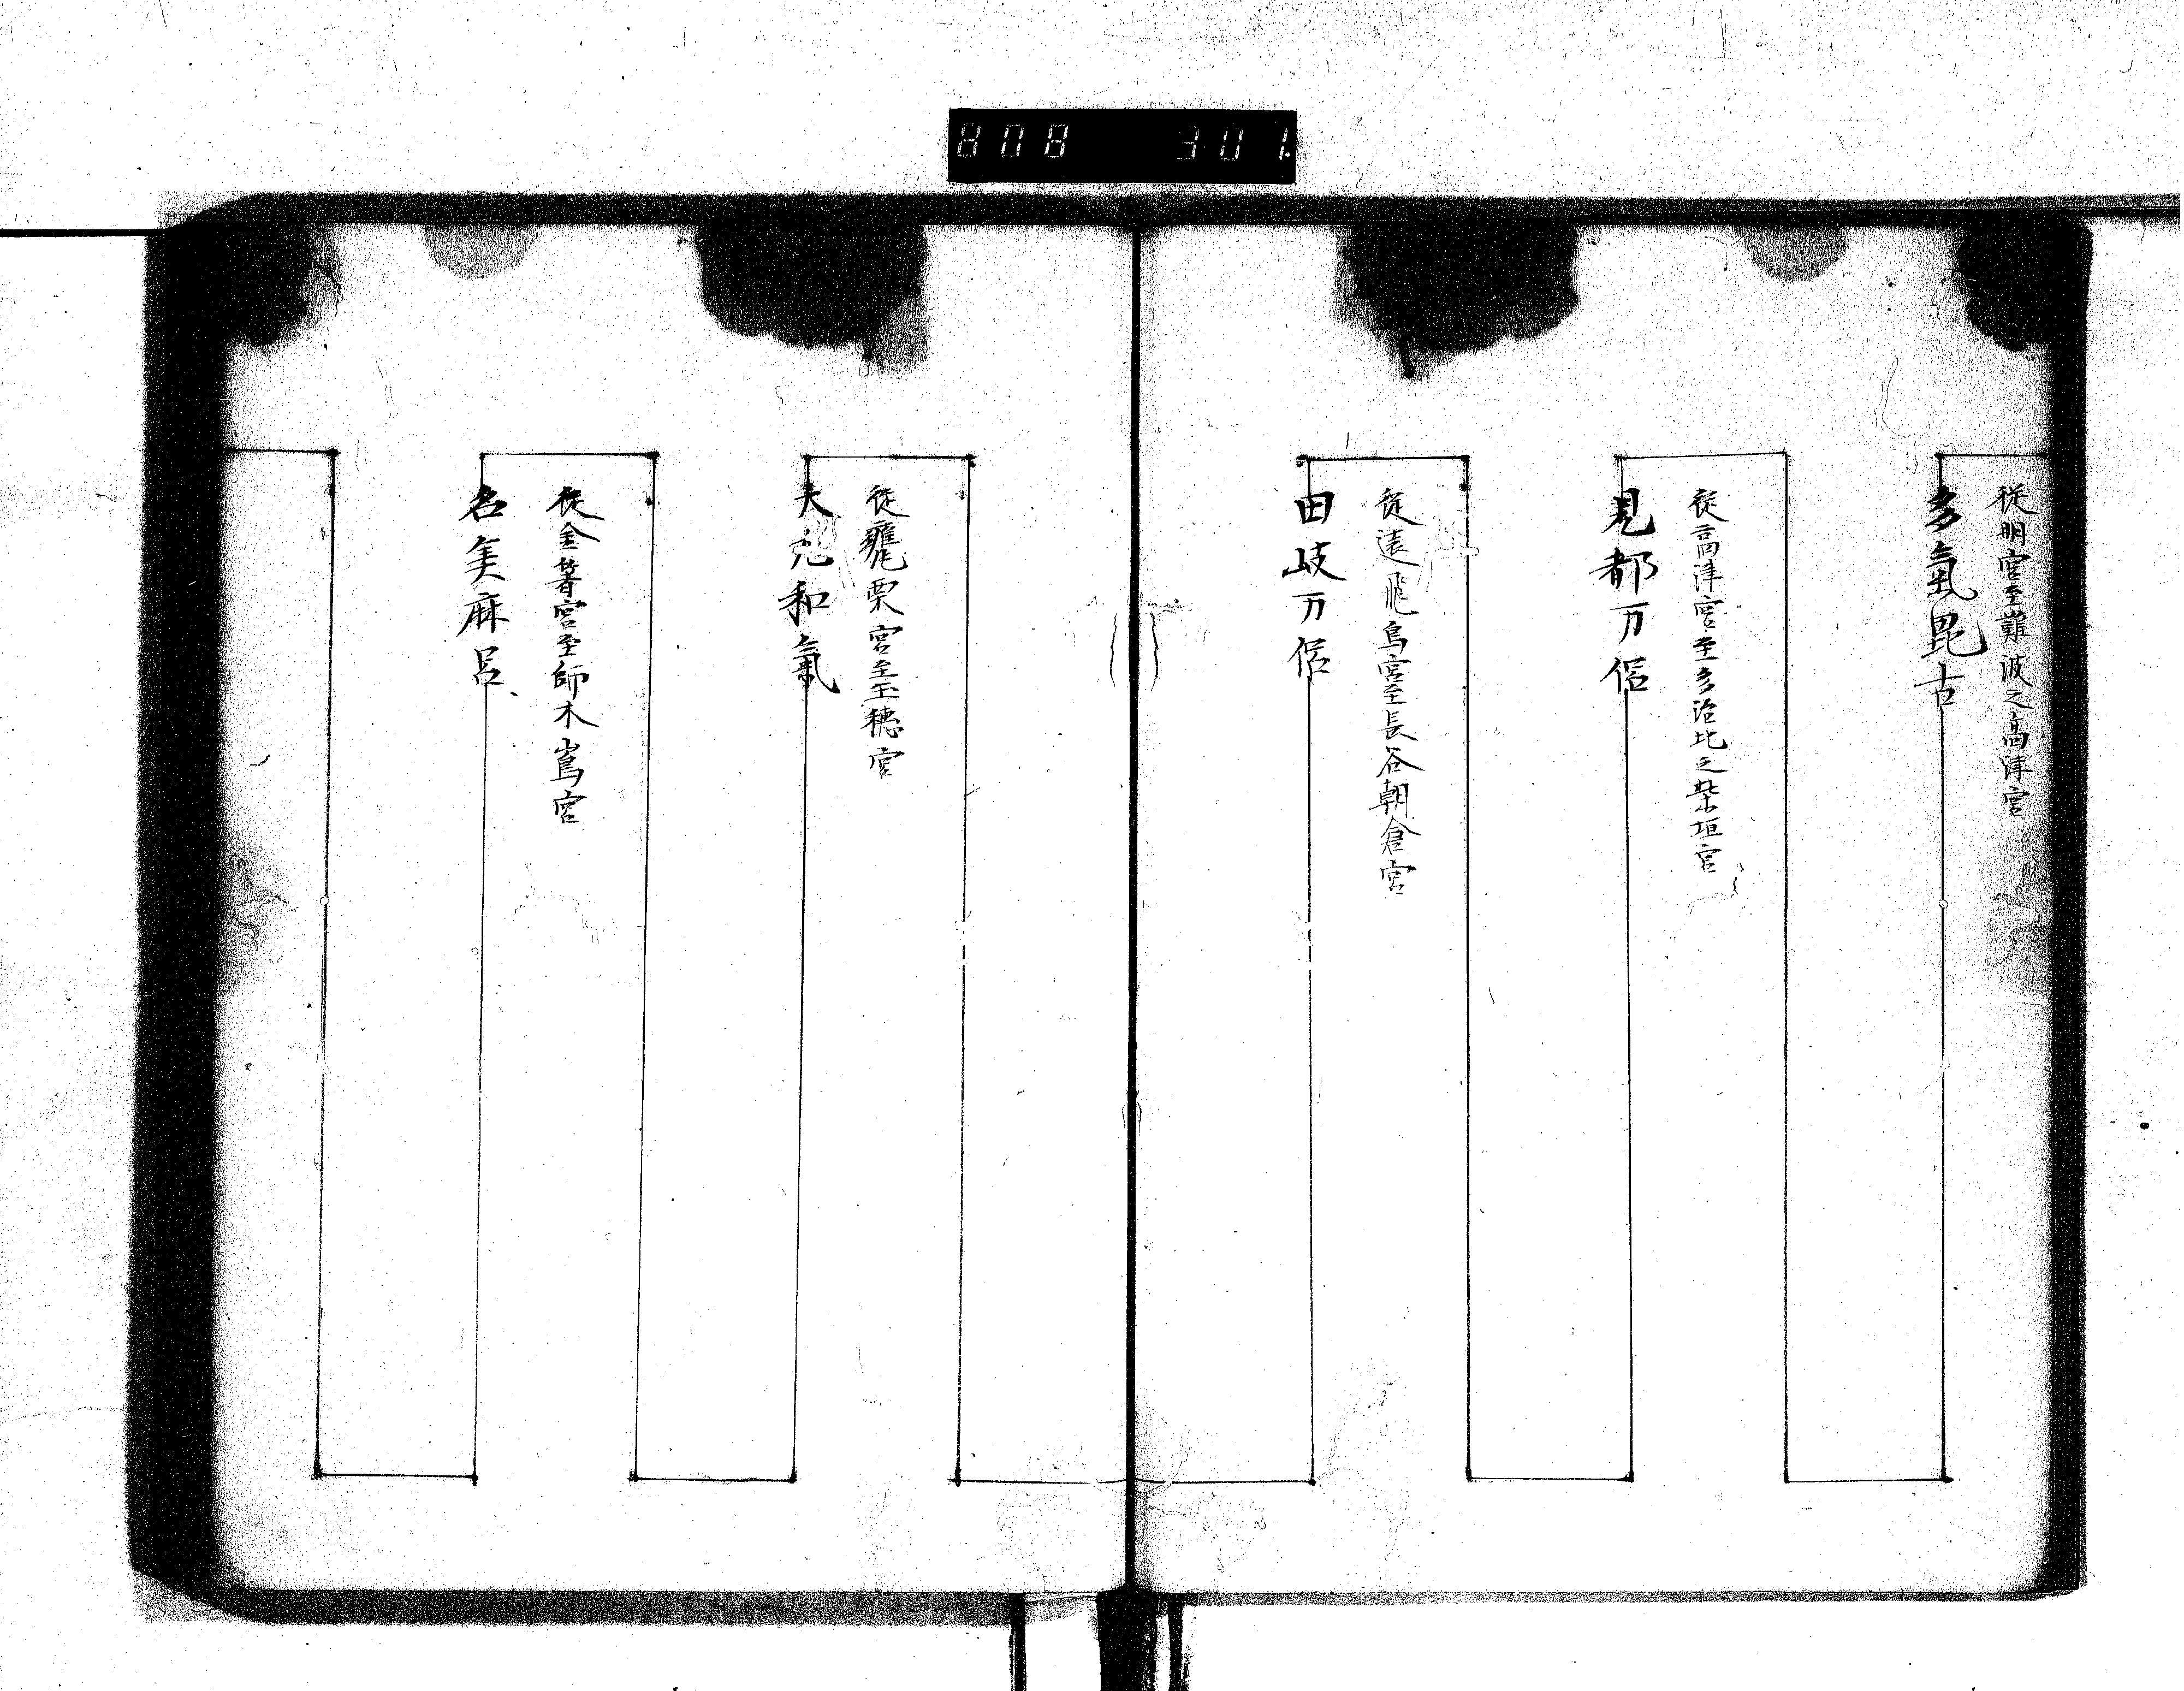 808 301
従明宮至難波之高津宮
多氣毘古
従高津宮至多治比之柴垣宮
見都万侶
従遠飛鳥宮至長谷朝倉宮
田岐万侶
従甕栗宮至玉穂宮
大和氣
従金箸宮至師木嶌宮
名美麻呂